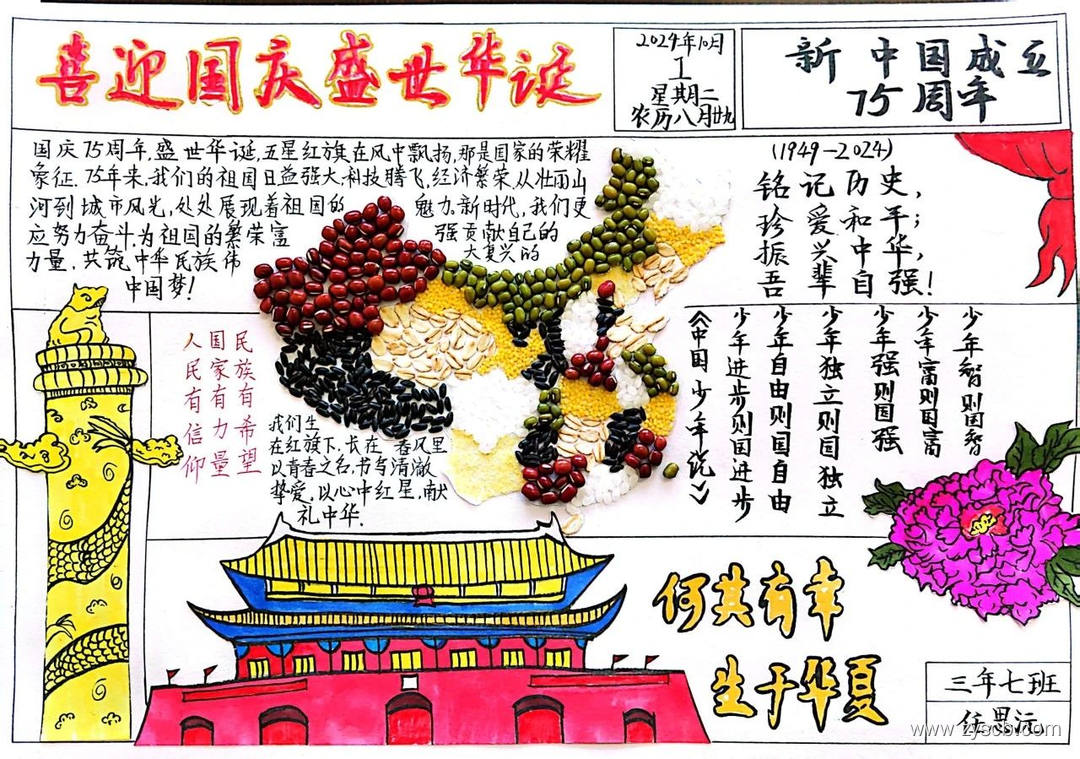 喜迎国庆盛世华诞
2024年10月
1
星期二
农历八月廿九
新中国成立
75周年
国庆75周年,盛世华诞,五星红旗在风中飘扬,那是国家的荣耀
象征.75年来,我们的祖国日益强大.科技腾飞,经济繁荣,从壮丽山
河到城市风光,处处展现着祖国的魅力.新时代,我们更
应努力奋斗,为祖国的繁荣富强贡献自己的
力量,共筑中华民族伟大复兴的
中国梦!
(1949—2024)
铭记历史,
珍爱和平;
振兴中华,
吾辈自强!
人民有信仰
国家有力量
民族有希望
我们生
在红旗下,长在春风里
以青春之名,书写清澈
挚爱,以心中红星,献
礼中华.
少年智则国智
少年富则国富
少年强则国强
少年独立则国独立
少年自由则国自由
少年进步则国进步
《中国少年说》
何其有幸
生于华夏
三年七班
任思沅
www.zyscb.com